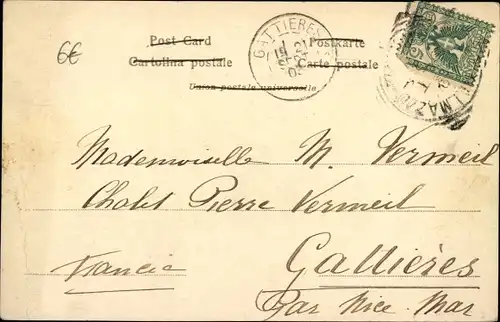 6€
Post Card Postkarte
Cartolina postale Carte postale
Union postale universelle
GATTIERES
Mademoiselle M. Vermeil
Chalet Pierre Vermeil
Francia Gattières
Par Nice Mar